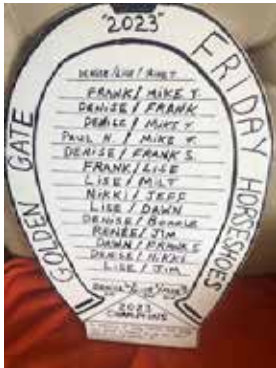 "2023"
GOLDEN GATE
FRIDAY HORSESHOES
DENISE/LISE/MIKE T
FRANK/MIKE T.
DENISE/FRANK
DENISE/MIKE T
PAUL N./MIKE T.
DENISE/FRANK S.
FRANK/LISE
LISE/MILT
NIKKI/JEFF
LISE/DAWN
DENISE/BONNIE
RENEE/JIM
DAWN/FRANK S
DENISE/NIKKI
LISE/JIM
DENISE/LISE/MIKE T
2023
CHAMPIONS